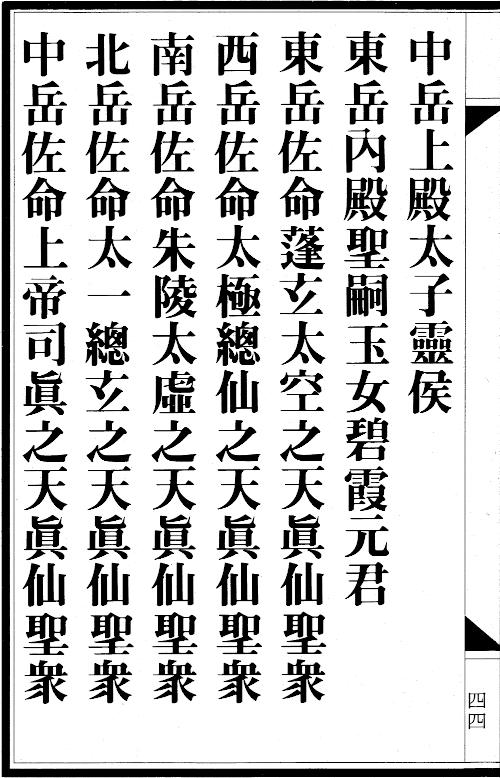 中岳上殿太子靈侯
東岳內殿聖嗣玉女碧霞元君
東岳佐命蓬玄太空之天眞仙聖衆
西岳佐命太極總仙之天眞仙聖衆
南岳佐命朱陵太虛之天眞仙聖衆
北岳佐命太一總玄之天眞仙聖衆
中岳佐命上帝司眞之天眞仙聖衆
四四